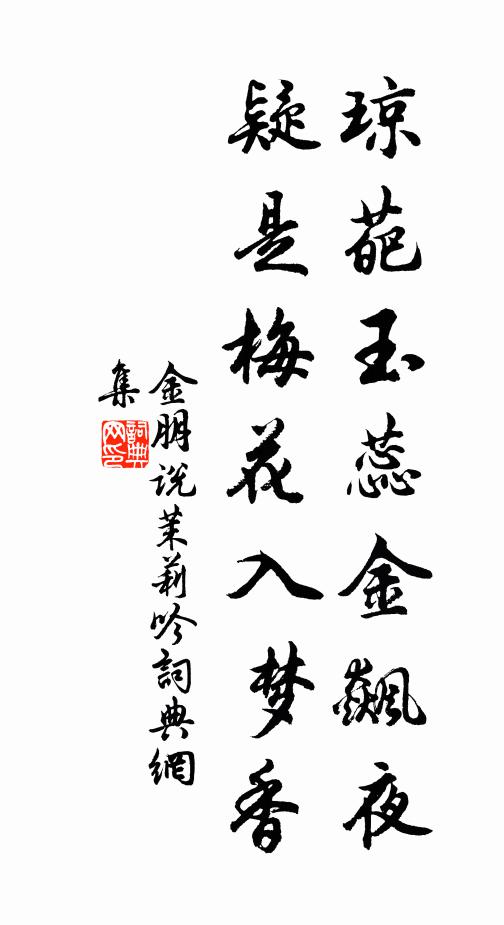 琼葩玉蕊金飆夜
疑是梅花入梦香
金朋说茉莉吟詞典網
集
詞典
网印